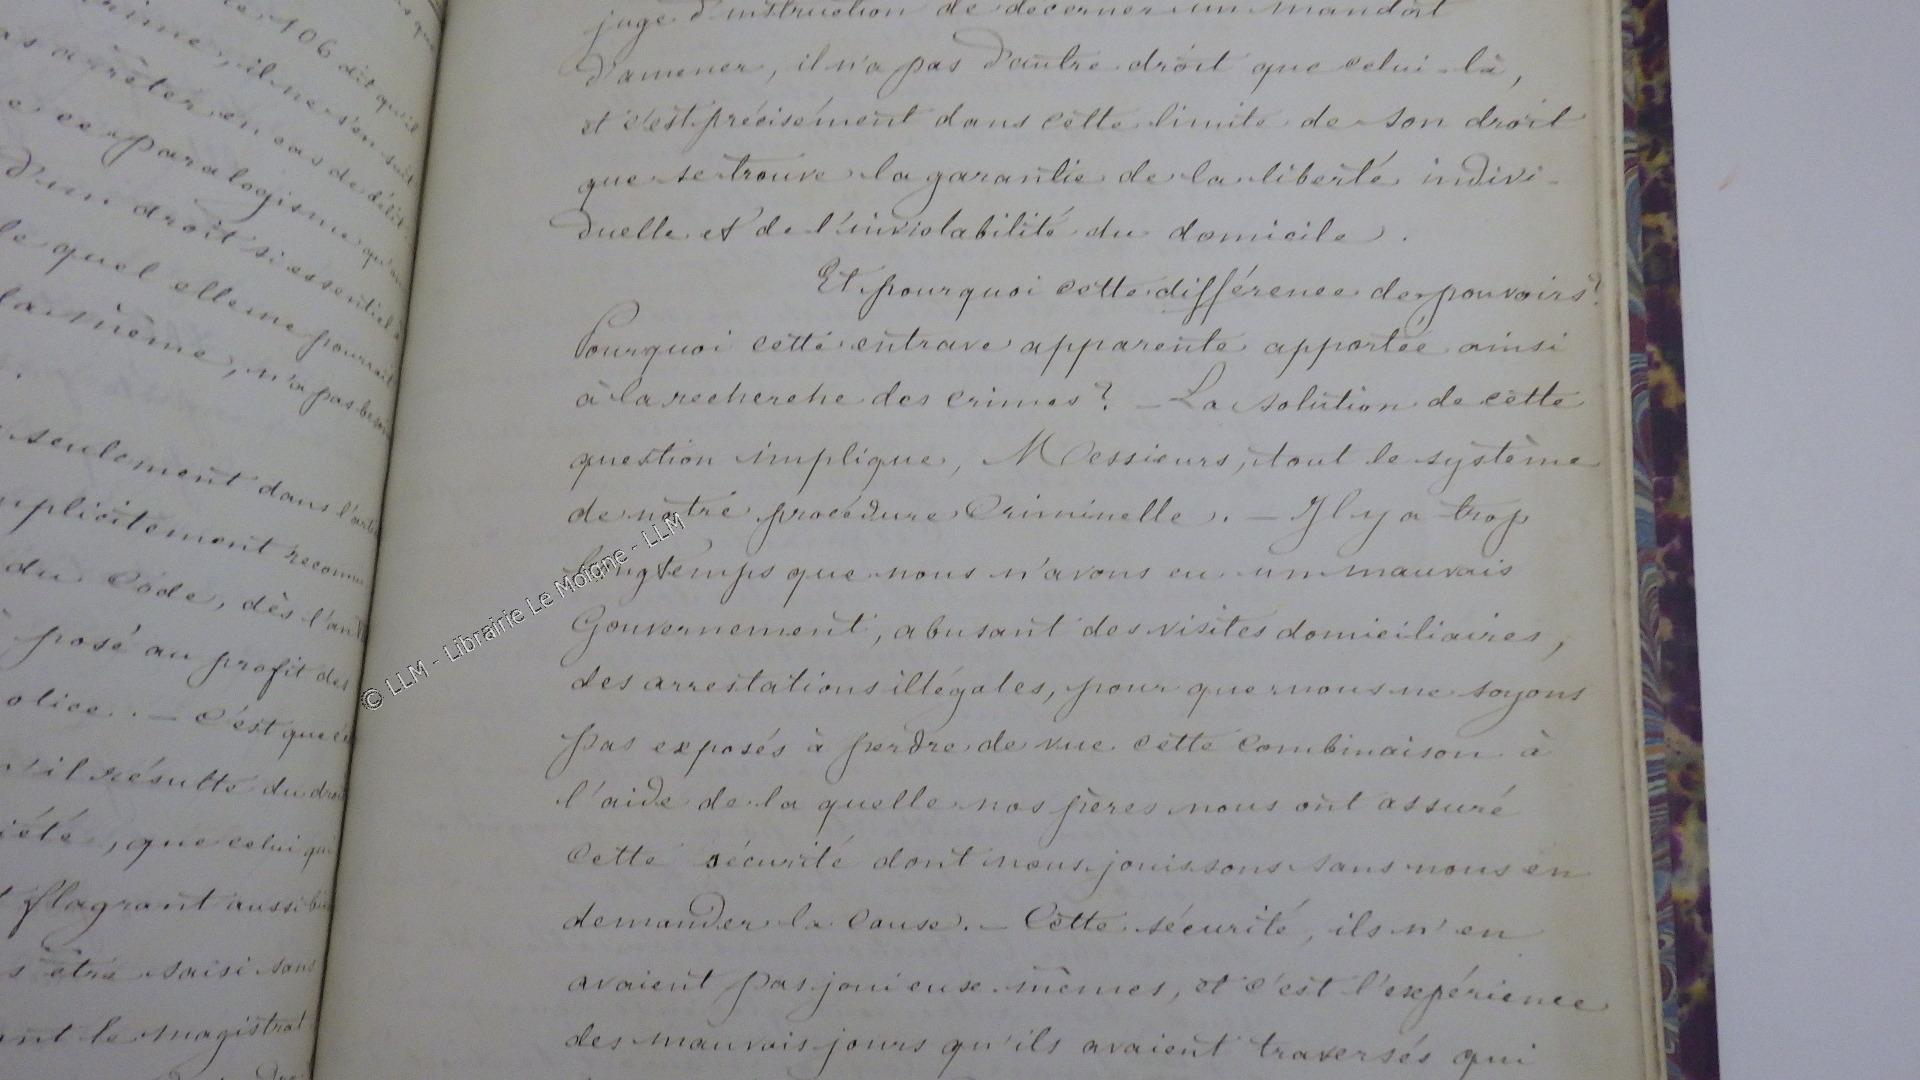 106 dit qu'il
crime, il ne s'en suit
arrêter en cas de délit.
ce paralogisme qu'un
d'un droit si essentiel à
le quel elle ne pourrait
la même, n'a pas besoin
seulement dans l'arti
mplicitement reconnu
du Code, dès l'an V
posé au profit des
olice. — C'est que c
'il résulte du droi
iété, que celui qui
flagrant aussi bi
s être saisi sans
ant le magistrat
juge d'instruction de décerner un mandat
d'amener, il n'a pas d'autre droit que celui-là,
et c'est précisément dans cette limite de son droit
que se trouve la garantie de la liberté indivi-
duelle et de l'inviolabilité du domicile.
Et pourquoi cette différence de pouvoirs?
Pourquoi cette entrave apparente apportée ainsi
à la recherche des crimes? — La solution de cette
question implique, Messieurs, tout le système
de notre procédure Criminelle. — Il y a trop
longtemps que nous n'avons eu un mauvais
Gouvernement, abusant des visites domiciliaires,
des arrestations illégales, pour que nous ne soyons
pas exposés à perdre de vue cette combinaison à
l'aide de la quelle nos pères nous ont assuré
cette sécurité dont nous jouissons sans nous en
demander la cause. — Cette sécurité, ils n'en
avaient pas joui eux-mêmes, et c'est l'expérience
des mauvais jours qu'ils avaient traversés qui
© LLM - Librairie Le Moigne - LLM